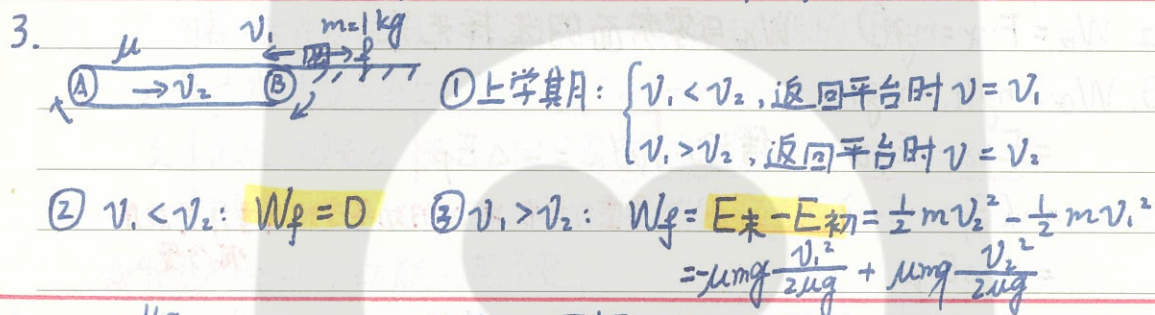 3. μ v₁ m=1kg f
Ⓐ →v₂ Ⓑ
①上学期: { v₁<v₂, 返回平台时 v=v₁
v₁>v₂, 返回平台时 v=v₂
② v₁<v₂: Wf=0 ③ v₁>v₂: Wf=E末-E初=½mv₂²-½mv₁²
=-μmg v₁²/2μg + μmg v₂²/2μg